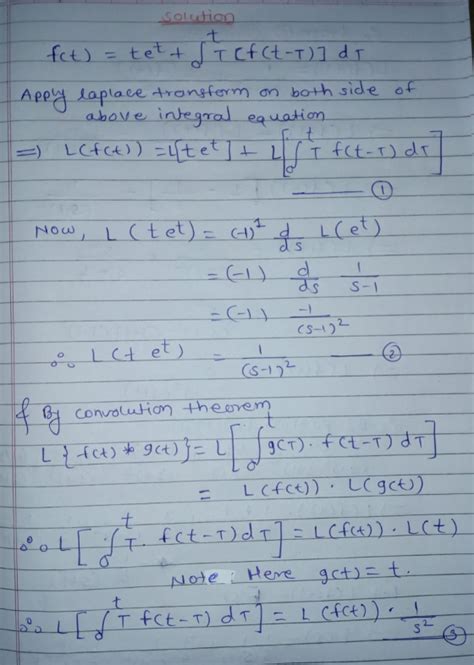 Solution
f(t) = te^t + ∫₀^t T [f(t-T)] dT
Apply laplace transform on both side of
above integral equation
=> L(f(t)) = L[te^t] + L[∫₀^t T f(t-T) dT]
—— ①
Now, L(te^t) = (-1)^1 d/ds L(e^t)
= (-1) d/ds 1/(s-1)
= (-1) -1/(s-1)^2
∴ L(t e^t) = 1/(s-1)^2 —— ②
& By convolution theorem
L{f(t) * g(t)} = L[∫₀^t g(T). f(t-T) dT]
= L(f(t)) . L(g(t))
∴ L[∫₀^t T. f(t-T) dT] = L(f(t)) . L(t)
Note : Here g(t) = t.
∴ L[∫₀^t T f(t-T) dT] = L(f(t)) . 1/s^2
—— ③